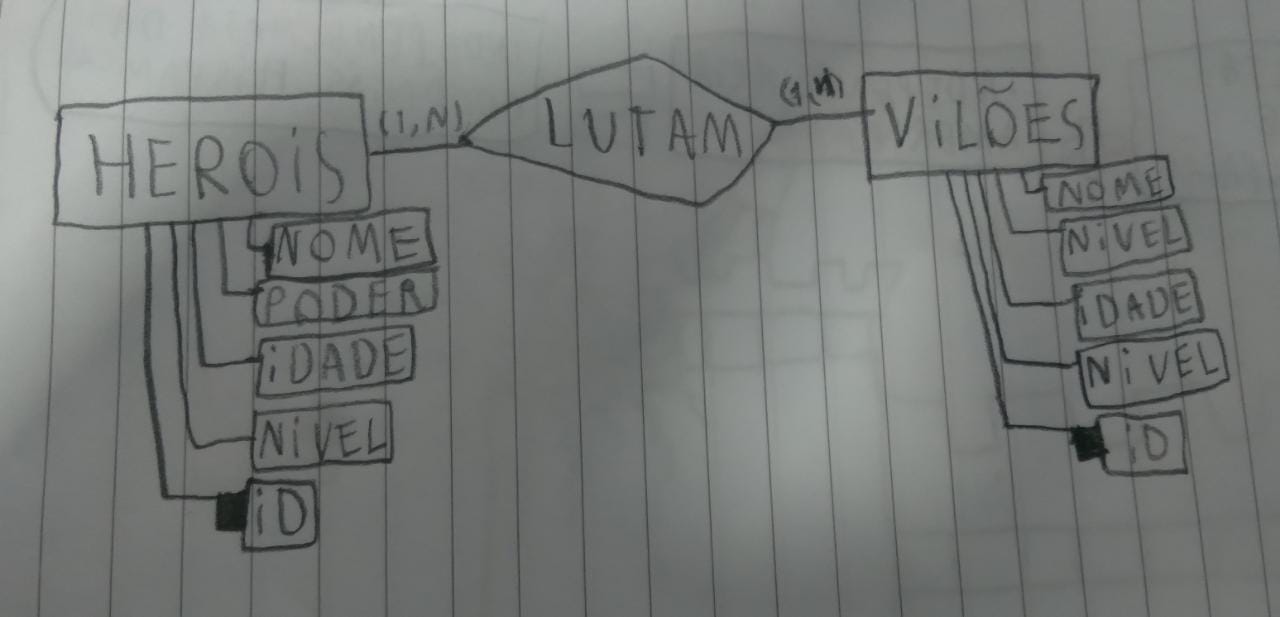 HEROiS
(1,N)
LUTAM
(1,N)
ViLÕES
NOME
PODER
iDADE
NiVEL
iD
NOME
NiVEL
iDADE
NiVEL
iD